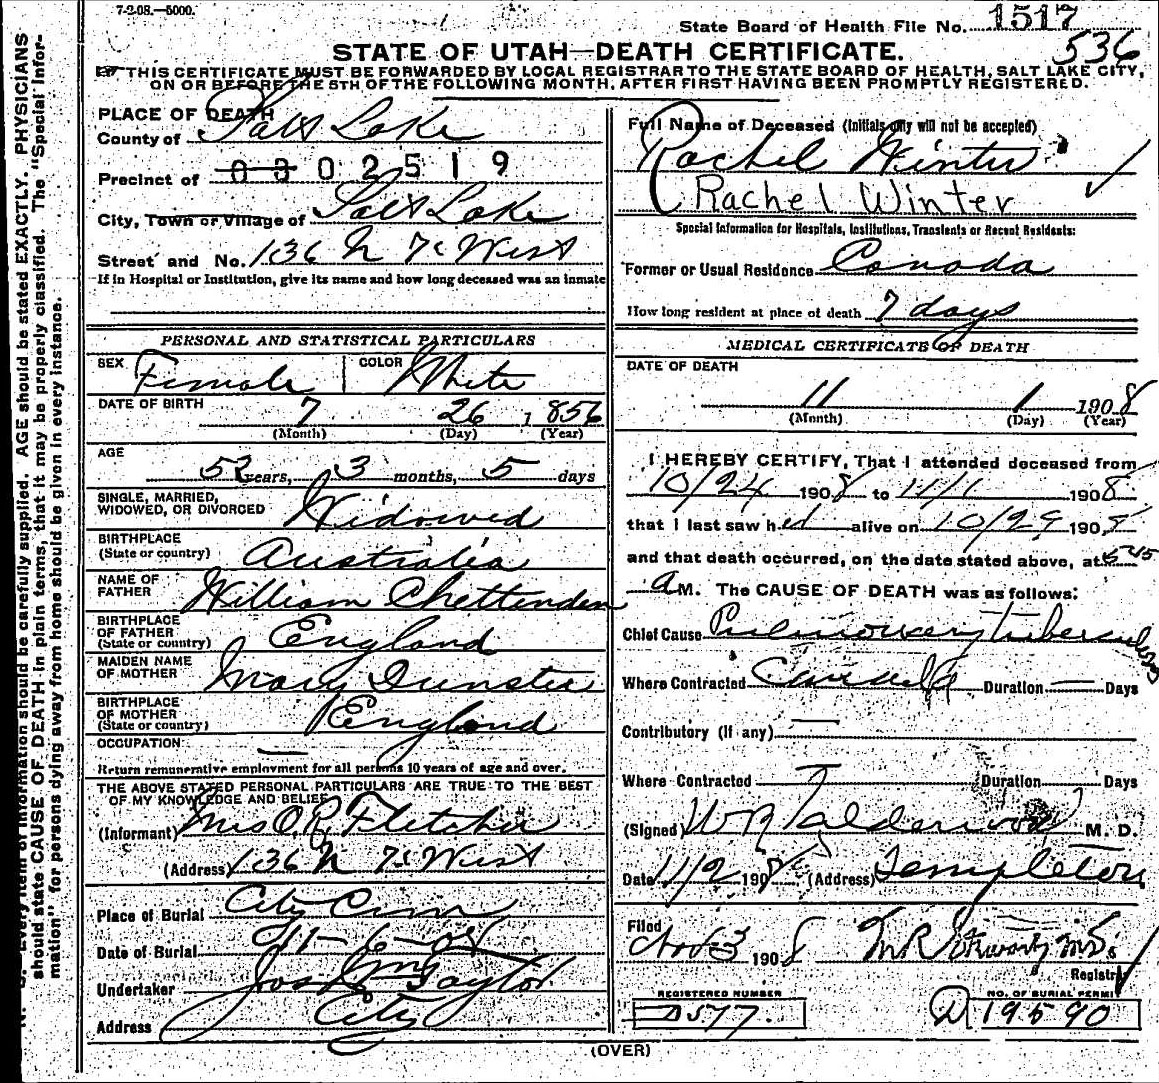 7-2-08.—5000.
State Board of Health File No. 1517
536
STATE OF UTAH—DEATH CERTIFICATE.
THIS CERTIFICATE MUST BE FORWARDED BY LOCAL REGISTRAR TO THE STATE BOARD OF HEALTH, SALT LAKE CITY,
ON OR BEFORE THE 5TH OF THE FOLLOWING MONTH, AFTER FIRST HAVING BEEN PROMPTLY REGISTERED.
PLACE OF DEATH
County of Salt Lake
Precinct of 0302519
City, Town or Village of Salt Lake
Street and No. 136 N 7th West
If in Hospital or Institution, give its name and how long deceased was an inmate
Full Name of Deceased (Initials only will not be accepted)
Rachel Winter
Rachel Winter
Special Information for Hospitals, Institutions, Transients or Recent Residents:
Former or Usual Residence Canada
How long resident at place of death 7 days
PERSONAL AND STATISTICAL PARTICULARS
SEX Female COLOR White
DATE OF BIRTH
7 26 1856
(Month) (Day) (Year)
AGE
52 years, 3 months, 5 days
SINGLE, MARRIED,
WIDOWED, OR DIVORCED Widowed
BIRTHPLACE
(State or country) Australia
NAME OF
FATHER William Chettenden
BIRTHPLACE
OF FATHER
(State or country) England
MAIDEN NAME
OF MOTHER Mary Dunster
BIRTHPLACE
OF MOTHER
(State or country) England
OCCUPATION —
Return remunerative employment for all persons 10 years of age and over.
THE ABOVE STATED PERSONAL PARTICULARS ARE TRUE TO THE BEST
OF MY KNOWLEDGE AND BELIEF
(Informant) Mrs O. R. Fletcher
(Address) 136 N 7th West
Place of Burial City Cem
Date of Burial 11-6-08
Undertaker Jos Wm Taylor
Address City
MEDICAL CERTIFICATE OF DEATH
DATE OF DEATH
11 1 1908
(Month) (Day) (Year)
I HEREBY CERTIFY, That I attended deceased from
10/24 1908 to 11/1 1908
that I last saw her alive on 10/29 1908
and that death occurred, on the date stated above, at 545
A M. The CAUSE OF DEATH was as follows:
Chief Cause Pulmonary tuberculosis
Where Contracted Canada Duration — Days
Contributory (If any) —
Where Contracted Duration Days
(Signed) W R Calderwood M. D.
Date 11/2 1908 (Address) Templeton
Filed
Nov 3 1908 M.D.
Registrar
REGISTERED NUMBER
D577
NO. OF BURIAL PERMIT
D 19590
(OVER)
N. B. Every item of information should be carefully supplied. AGE should be stated EXACTLY. PHYSICIANS
should state CAUSE OF DEATH in plain terms, that it may be properly classified. The "Special Infor-
mation" for persons dying away from home should be given in every instance.